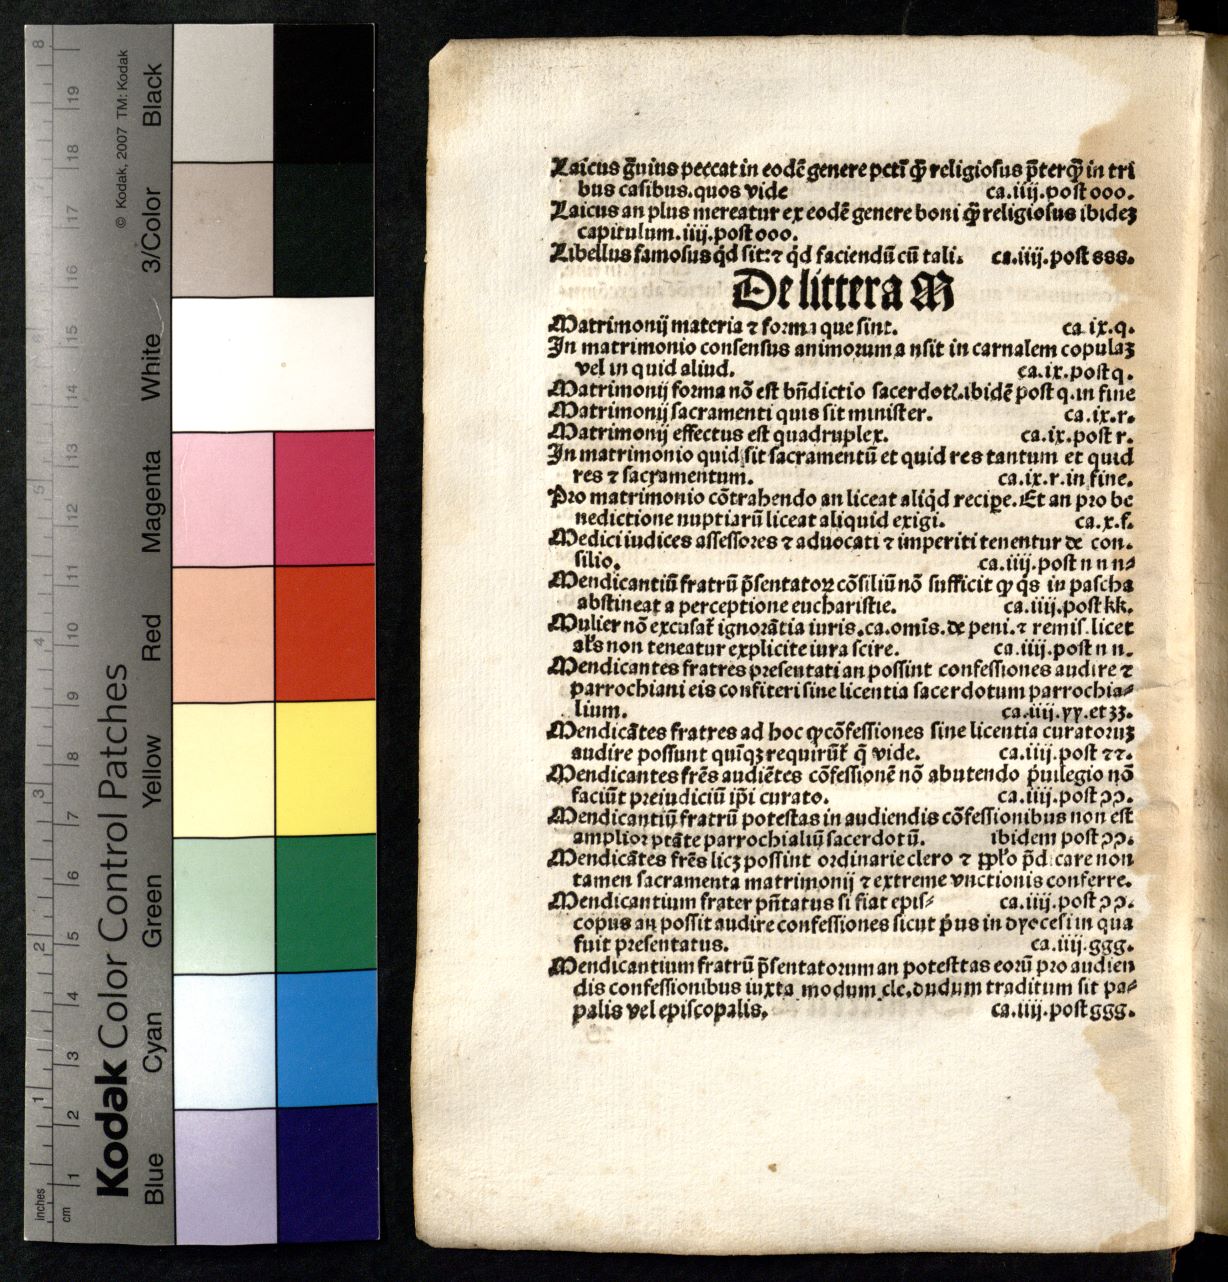 Laicus g̃uius peccat in eodē genere pctī q̄ꝫ religiosus p̄terq̄ꝫ in tri
bus casibus.quos vide ca.iiij.post ooo.
Laicus an plus mereatur ex eodē genere boni q̄ꝫ religiosus ibideꝫ
capitulum.iiij.post ooo.
Libellus famosus qd́ sit:⁊ qd́ faciendū cū tali. ca.iiij.post sss.
De littera M
Matrimonij materia ⁊ forma que sint. ca.ix.q.
In matrimonio consensus animorum a nsit in carnalem copulaꝫ
vel in quid aliud. ca.ix.post q.
Matrimonij forma nō est bn̄dictio sacerdotꝭ.ibidē post q.in fine
Matrimonij sacramenti quis sit minister. ca.ix.r.
Matrimonij effectus est quadruplex. ca.ix.post r.
In matrimonio quid sit sacramentū et quid res tantum et quid
res ⁊ sacramentum. ca.ix.r.in fine.
Pro matrimonio cōtrahendo an liceat aliqd́ recipe.Et an pro be
nedictione nuptiarū liceat aliquid exigi. ca.x.f.
Medici iudices assessores ⁊ aduocati ⁊ imperiti tenentur de con.
silio. ca.iiij.post n n n⸗
Mendicantiū fratrū p̄sentatoꝝ cōsiliū nō sufficit ꝙ qs in pascha
abstineat a perceptione eucharistie. ca.iiij.post kk.
Mulier nō excusat̄ ignorātia iuris.ca.omīs.de peni.⁊ remis.licet
al̄s non teneatur explicite iura scire. ca.iiij.post n n.
Mendicantes fratres presentati an possint confessiones audire ⁊
parrochiani eis confiteri sine licentia sacerdotum parrochia⸗
lium. ca.iiij.yy.et zz.
Mendicātes fratres ad hoc ꝙ cōfessiones sine licentia curatoruꝫ
audire possunt quīqꝫ requirūt̄ q̄ vide. ca.iiij.post ⁊⁊.
Mendicantes frēs audiētes cōfessionē nō abutendo p̄uilegio nō
faciūt preiudiciū ip̄i curato. ca.iiij.post ꝯꝯ.
Mendicantiū fratrū potestas in audiendis cōfessionibus non est
amplior ptāte parrochialiū sacerdotū. ibidem post ꝯꝯ.
Mendicātes frēs licꝫ possint ordinarie clero ⁊ pp̄lo p̄dicare non
tamen sacramenta matrimonij ⁊ extreme vnctionis conferre.
Mendicantium frater pn̄tatus si fiat epis⸗ ca.iiij.post ꝯꝯ.
copus an possit audire confessiones sicut p̄us in dyocesi in qua
fuit presentatus. ca.iiij.ggg.
Mendicantium fratrū p̄sentatorum an potesttas eorū pro audien
dis confessionibus iuxta modum.cle.dudum traditum sit pa⸗
palis vel episcopalis. ca.iiij.post ggg.
Kodak Color Control Patches
© Kodak, 2007 TM: Kodak
Blue Cyan Green Yellow Red Magenta White 3/Color Black
inches 1 2 3 4 5 8
cm 1 2 3 4 5 6 7 8 9 10 11 12 13 14 15 16 17 18 19